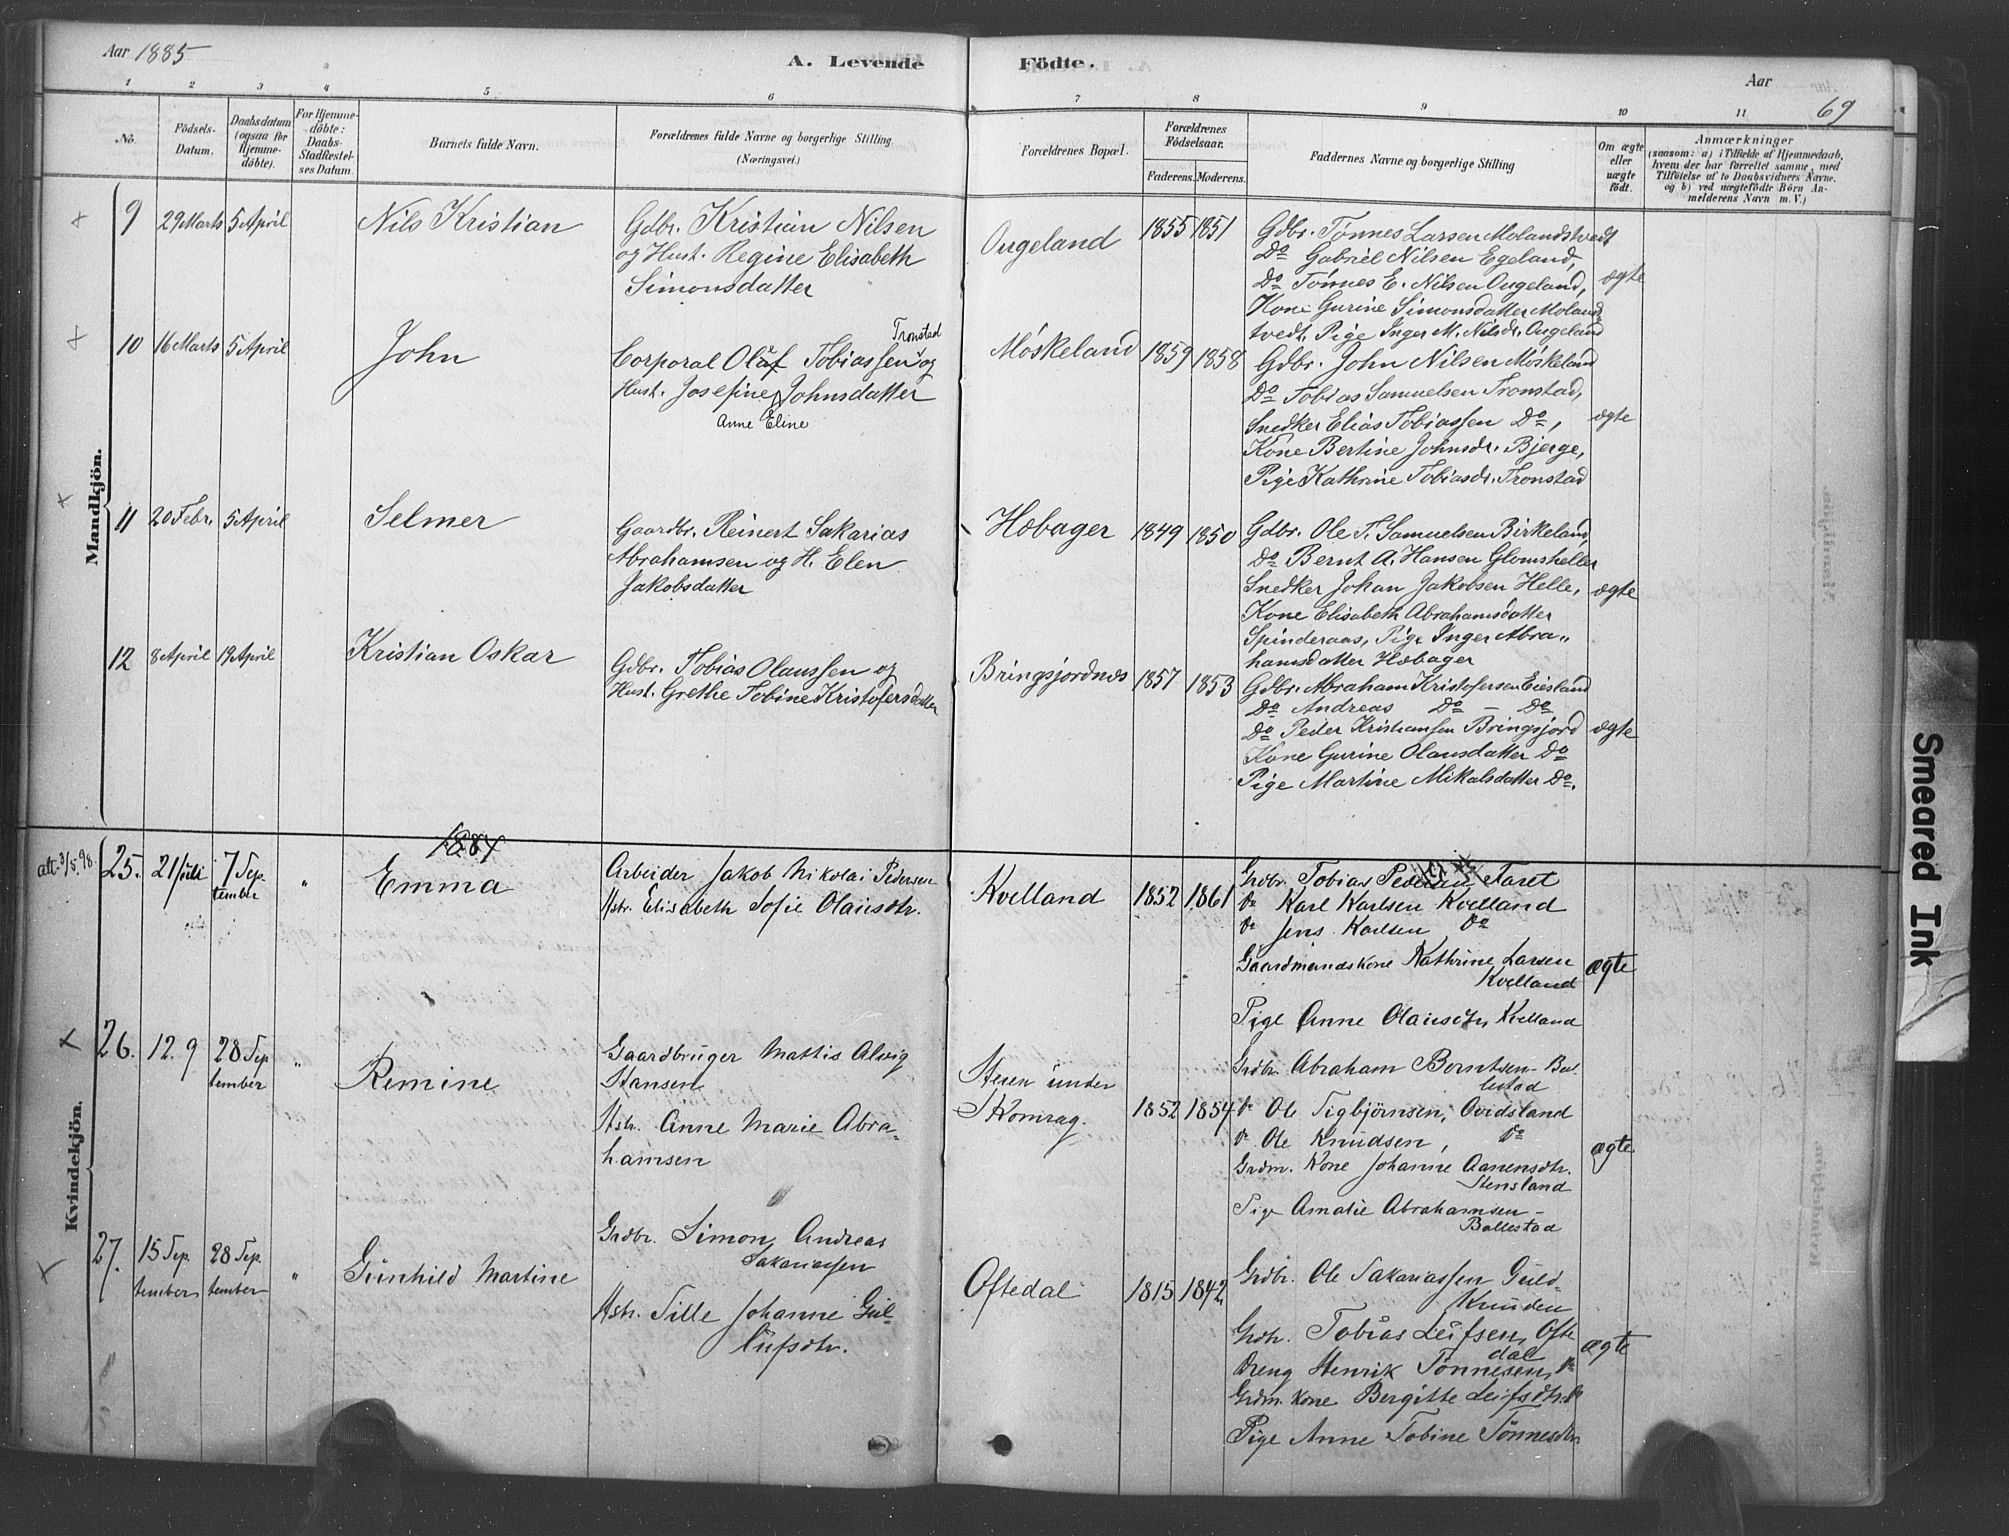 Aar 1885
A. Levende Födte.
Aar
69
1 2 3 4 5 6 7 8 9 10 11
No.
Födsels-Datum.
Daabsdatum (ogsaa for Hjemmedöbte).
For Hjemmedöbte: Daabs-Stadfestelses Datum.
Barnets fulde Navn.
Forældrenes fulde Navne og borgerlige Stilling (Næringsvei.)
Forældrenes Bopæl.
Forældrenes Födselsaar.
Faderens. Moderens.
Faddernes Navne og borgerlige Stilling
Om ægte eller uægte födt.
Anmærkninger
(saasom: a) i Tilfælde af Hjemmedaab, hvem der har forrettet samme, med Tilföielse af to Daabsvidners Navne, og b) ved uægtefödte Börn Anmelderens Navn m. V.)
Mandkjön.
9 29 Marts 5 April
Nils Kristian
Gdbr. Kristian Nilsen
og Hust. Regine Elisabeth
Simonsdatter
Ougeland
1855 1851
Gdbr. Tönnes Larsen Molandstvedt
Do Gabriel Nilsen Egeland,
Do Tönnes E. Nilsen Ougeland,
Kone Gurine Simonsdatter Molands
tvedt, Pige Inger M. Nilsdr. Ougeland
ægte
10 16 Marts 5 April
John
Tronstad
Corporal Olaf Tobiassen og
Hust. Josefine Johnsdatter
Anne Eline
Möskeland
1859 1858
Gdbr. John Nilsen Möskeland
Do Tobias Samuelsen Tronstad,
Snedker Elias Tobiassen Do,
Kone Bertine Johnsdr. Bjerge,
Pige Kathrine Tobiasdr. Tronstad
ægte
11 20 Febr. 5 April
Selmer
Gaardbr. Reinert Sakarias
Abrahamsen og H. Elen
Jakobsdatter
Hobager
1849 1850
Gdbr. Ole T. Samuelsen Birkeland,
Do Bernt A. Hansen Glomsheller
Snedker Johan Jakobsen Helle,
Kone Elisabeth Abrahamsdatter
Spinderaas, Pige Inger Abra„
hamsdatter Hobager
ægte
12 8 April 19 April
Kristian Oskar
Gdbr. Tobias Olaussen og
Hust. Grethe Tobine Kristofersdatter
Bringsjordnes
1857 1853
Gdbr. Abraham Kristofersen Eiesland
Do Andreas Do - Do
Do Peder Kristiansen Bringsjord
Kone Gurine Olausdatter Do
Pige Martine Mikalsdatter Do.
ægte
1884
Kvindekjön.
att. 3/5 98.
25. 21 Juli 7 Sep.
tember „
Emma
Arbeider Jakob Nikolai Pedersen
Hstr. Elisabeth Sofie Olausdtr.
Kvelland
1852 1861
Grdbr. Tobias Pedersen Faret
Do Karl Karlsen Kvelland
Do Jens Karlsen Do
Gaardmandskone Kathrine Larsen
Kvelland
Pige Anne Olausdtr Kvelland
ægte
26. 12. 9 28 Sep
tember „
Remine
Gaardbruger Mattis Alvig
Hansen
Hstr. Anne Marie Abra„
hamsen
Steen under
Skomrag.
1852 1854
Grdbr. Abraham Berntsen Bal
lestad
Do Ole Sigbjörnsen, Ovidsland
Do Ole Knudsen, Do
Grdm. Kone Johanne Aanensdtr.
Stensland
Pige Amalie Abrahamsen -
Ballestad
ægte
27. 15 Sep. 28 Sep.
tember tember „
Gunhild Martine
Grdbr. Simon Andreas
Sakariassen
Hstr. Tille Johanne Gul-
lufsdtr.
Oftedal
1815 1842
Grdbr. Ole Sakariassen Guld-
Knuden
Grdbr. Tobias Leifsen, Ofte
dal
Dreng Henrik Tönnesen, Do
Grdm. Kone Bergitte Leifsdtr. Do
Pige Anne Tobine Tönnesdtr.
ægte
Smeared Ink